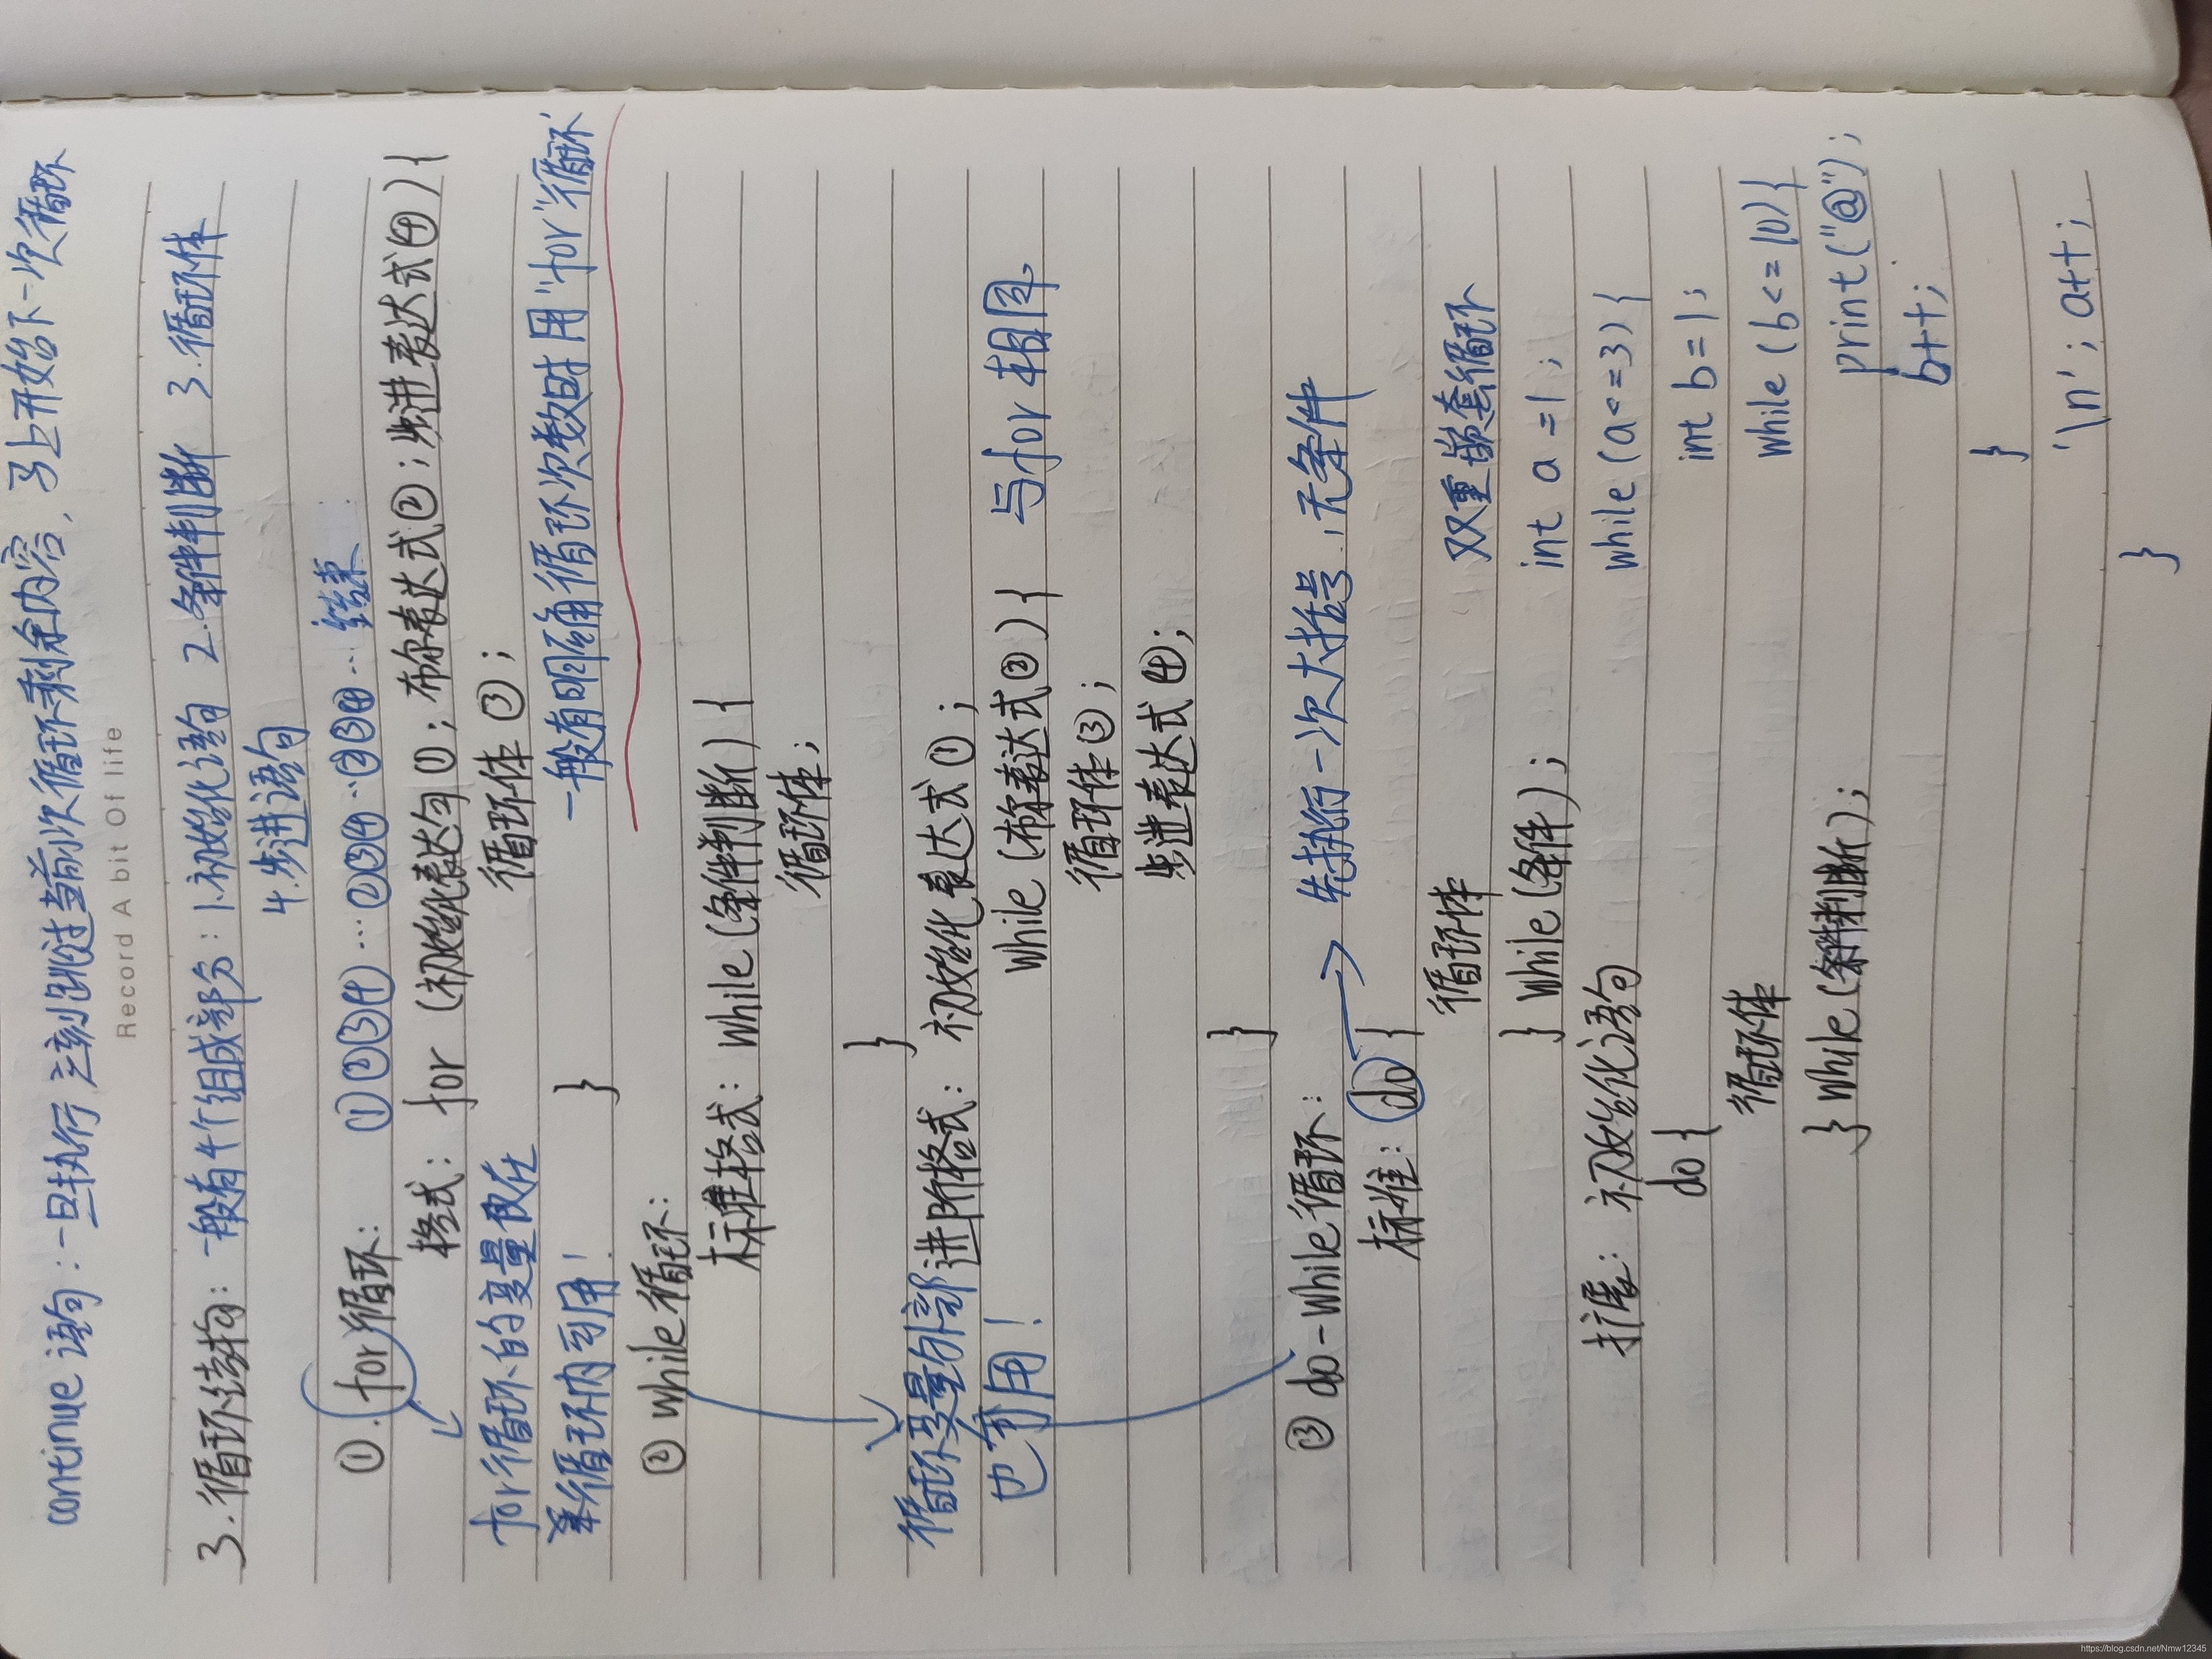 continue 语句：一旦执行，立刻跳过当前次循环剩余内容，马上开始下一次循环
Record A bit Of life
3.循环结构：一般有4个组成部分：1.初始化语句 2.条件判断 3.循环体
4.步进语句
①.for循环： ①②③④…②③④…②③④…结束
格式：for（初始化表达句①；布尔表达式②；步进表达式④）{
循环体③；
}
一般有明确循环次数时用"for"循环
for循环的变量仅在
单循环内可用！
②while循环：
标准格式：while（条件判断）{
循环体；
}
循环变量外部
也可用！
进阶格式：初始化表达式①；
while（布尔表达式②）{ 与for相同
循环体③；
步进表达式④；
}
③do-while循环： → 先执行一次大括号，无条件
标准：do{
循环体
}while（条件）；
扩展：初始化语句
do{
循环体
}while（条件判断）；
双重嵌套循环
int a=1;
while(a<=3){
int b=1;
while(b<=10){
print("@");
b++;
}
'\n'; a++;
}
https://blog.csdn.net/Nmw12345